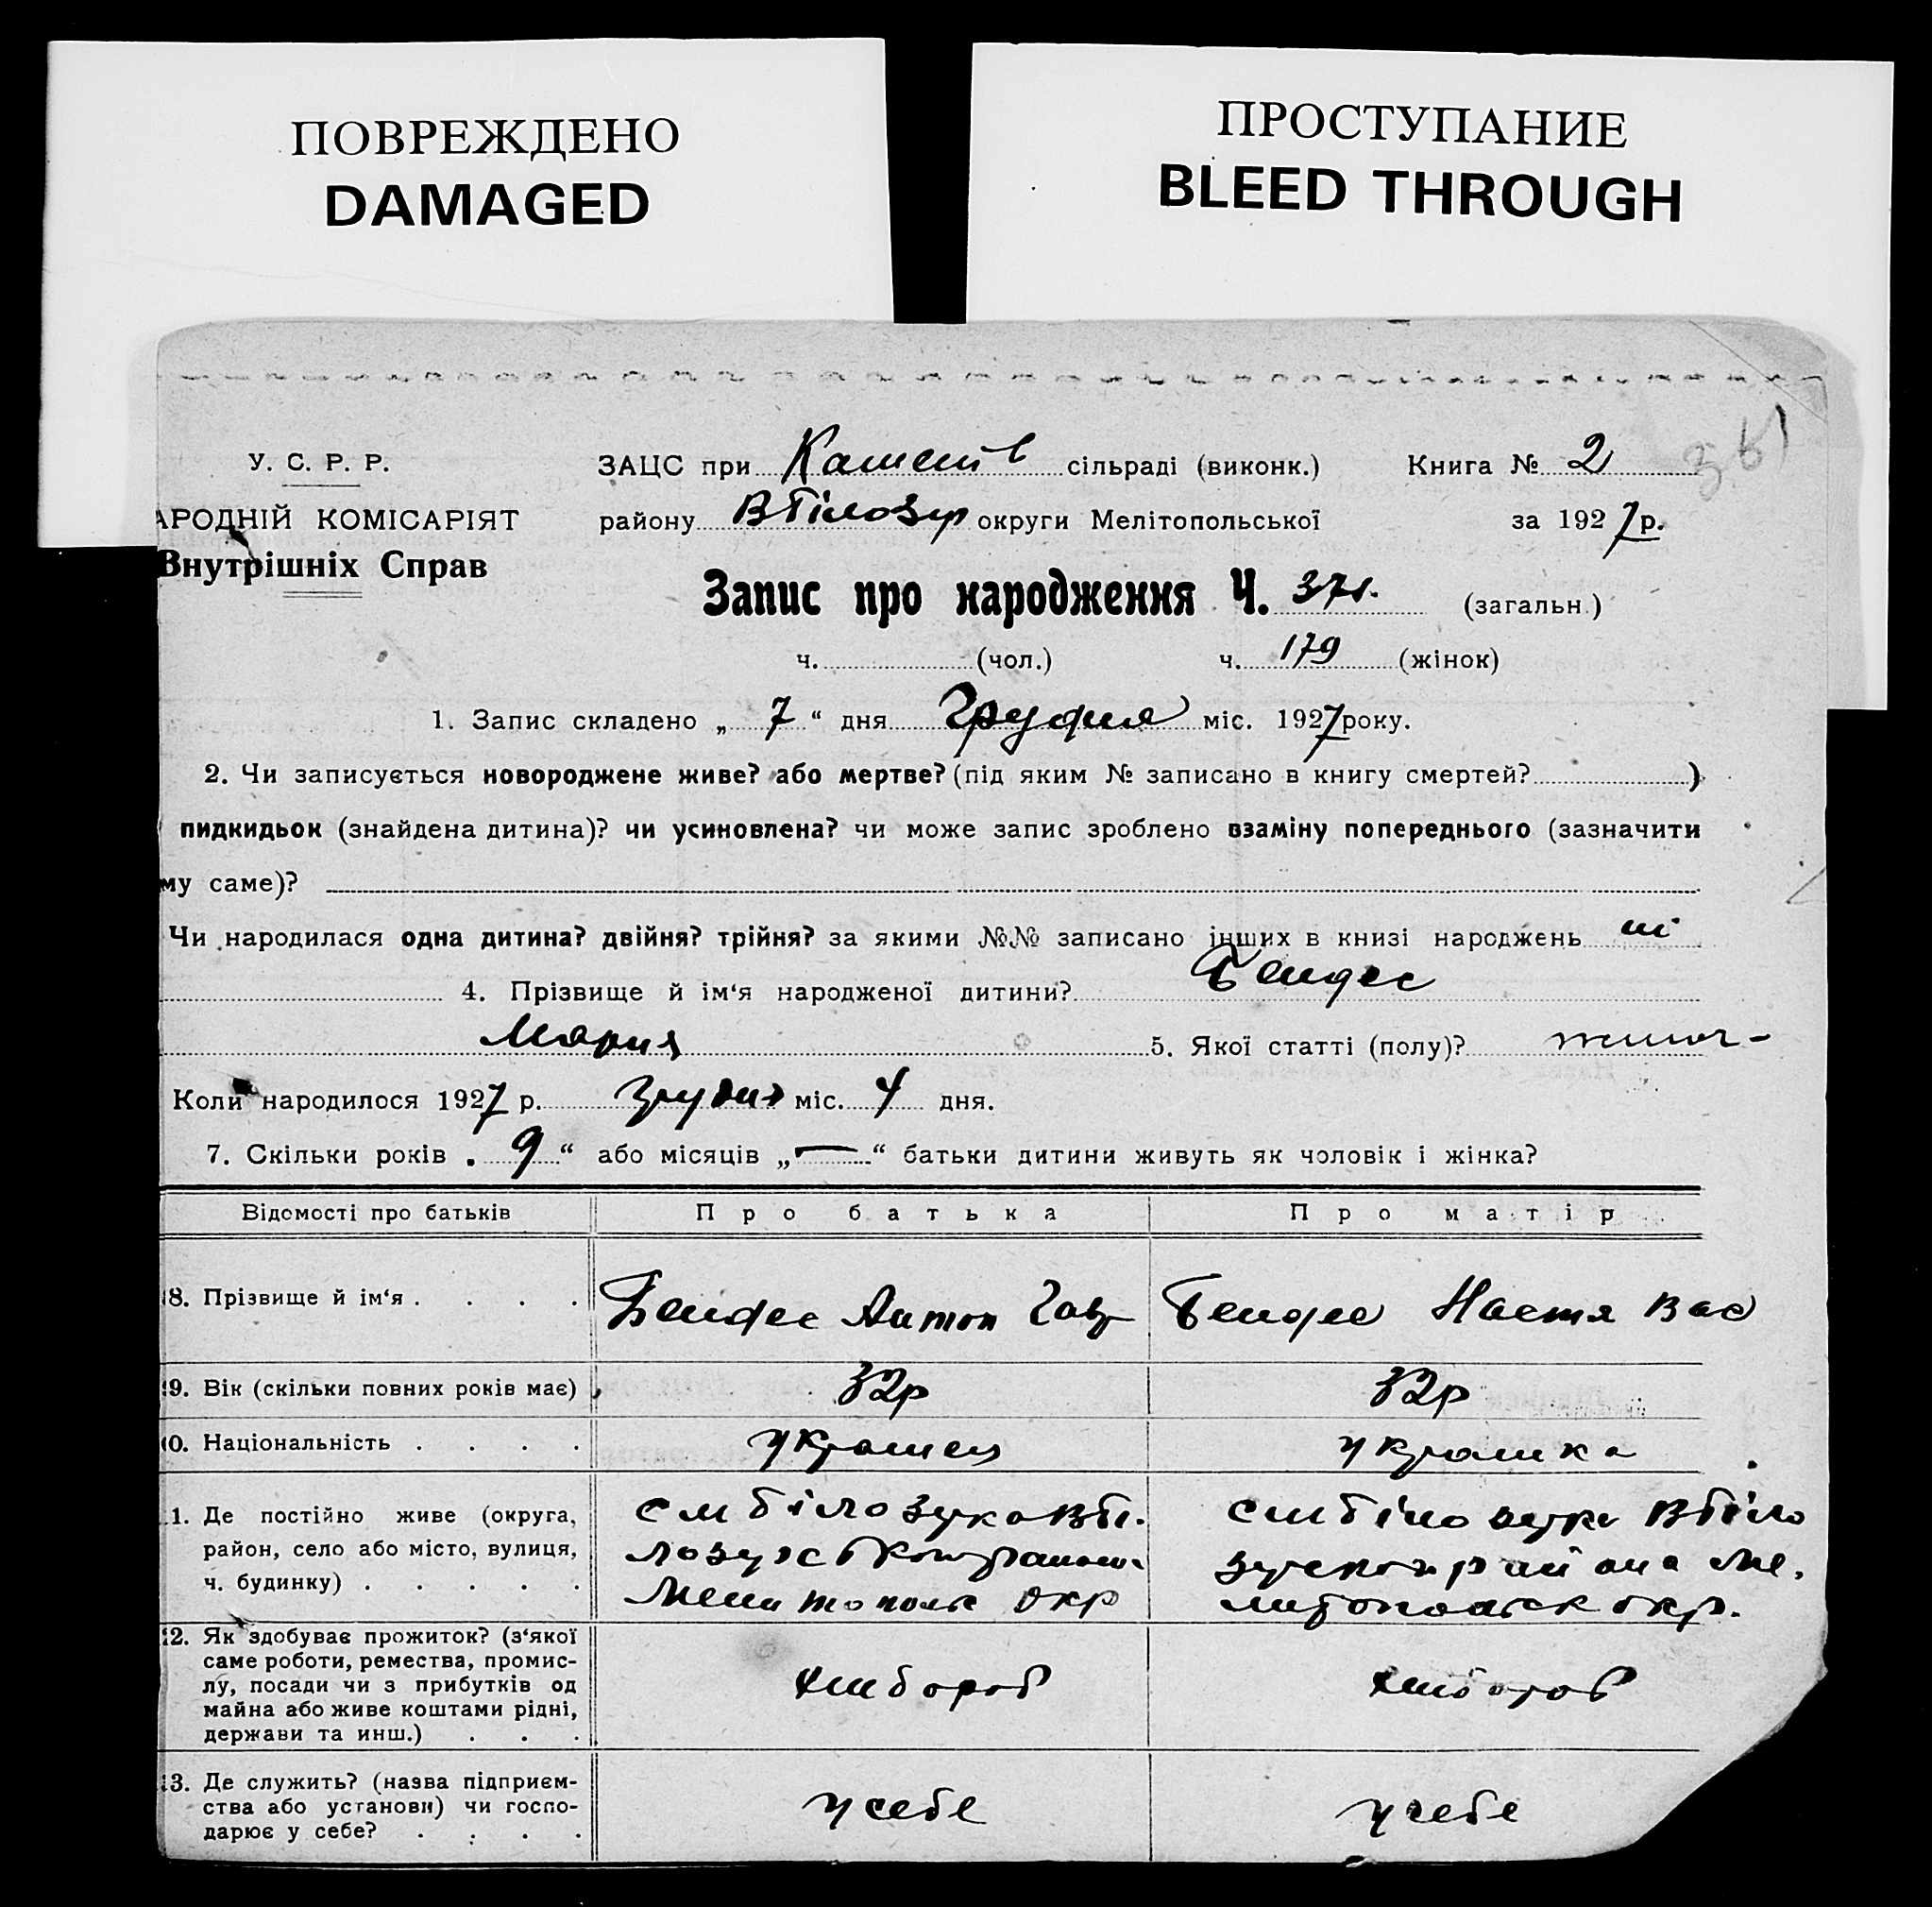 ПОВРЕЖДЕНО
DAMAGED
ПРОСТУПАНИЕ
BLEED THROUGH
У. С. Р. Р.
АРОДНІЙ КОМІСАРІЯТ
Внутрішніх Справ
ЗАЦС при сільраді (виконк.) Книга № 2
району ВБілозур округи Мелітопольської за 1927 р.
Запис про народження Ч. 371. (загальн.)
ч. (чол.) ч. 179 (жінок)
1. Запис складено „ 7 “ дня Грудня міс. 1927 року.
2. Чи записується новороджене живе? або мертве? (під яким № записано в книгу смертей? )
пидкидьок (знайдена дитина)? чи усиновлена? чи може запис зроблено взаміну попереднього (зазначити
му саме)?
Чи народилася одна дитина? двійня? трійня? за якими №№ записано інших в книзі народжень ні
4. Прізвище й ім‘я народженої дитини? Бендес
Мария 5. Якої статті (полу)? жиноч-
Коли народилося 1927 р. грудня міс. 4 дня.
7. Скільки років „ 9 “ або місяців „ — “ батьки дитини живуть як чоловік і жінка?
Відомості про батьків Про батька Про матір
8. Прізвище й ім‘я . . . . Бендес Антон Гавр Бендес Настя Вас
9. Вік (скільки повних років має) 32р 32р
0. Національність . . . . украинец украинка
1. Де постійно живе (округа,
район, село або місто, вулиця,
ч. будинку) . . . . .
см білозурка ВБі-
лозурськ
Мелитопольс окр
см білозурка ВБіло
зурског района Ме-
литопольск окр.
2. Як здобуває прожиток? (з‘якої
саме роботи, ремества, промис-
лу, посади чи з прибутків од
майна або живе коштами рідні,
держави та инш.) . . .
хлибороб хлибороб
3. Де служить? (назва підприєм-
ства або установи) чи госпо-
дарює у себе? . . . .
у себе у себе